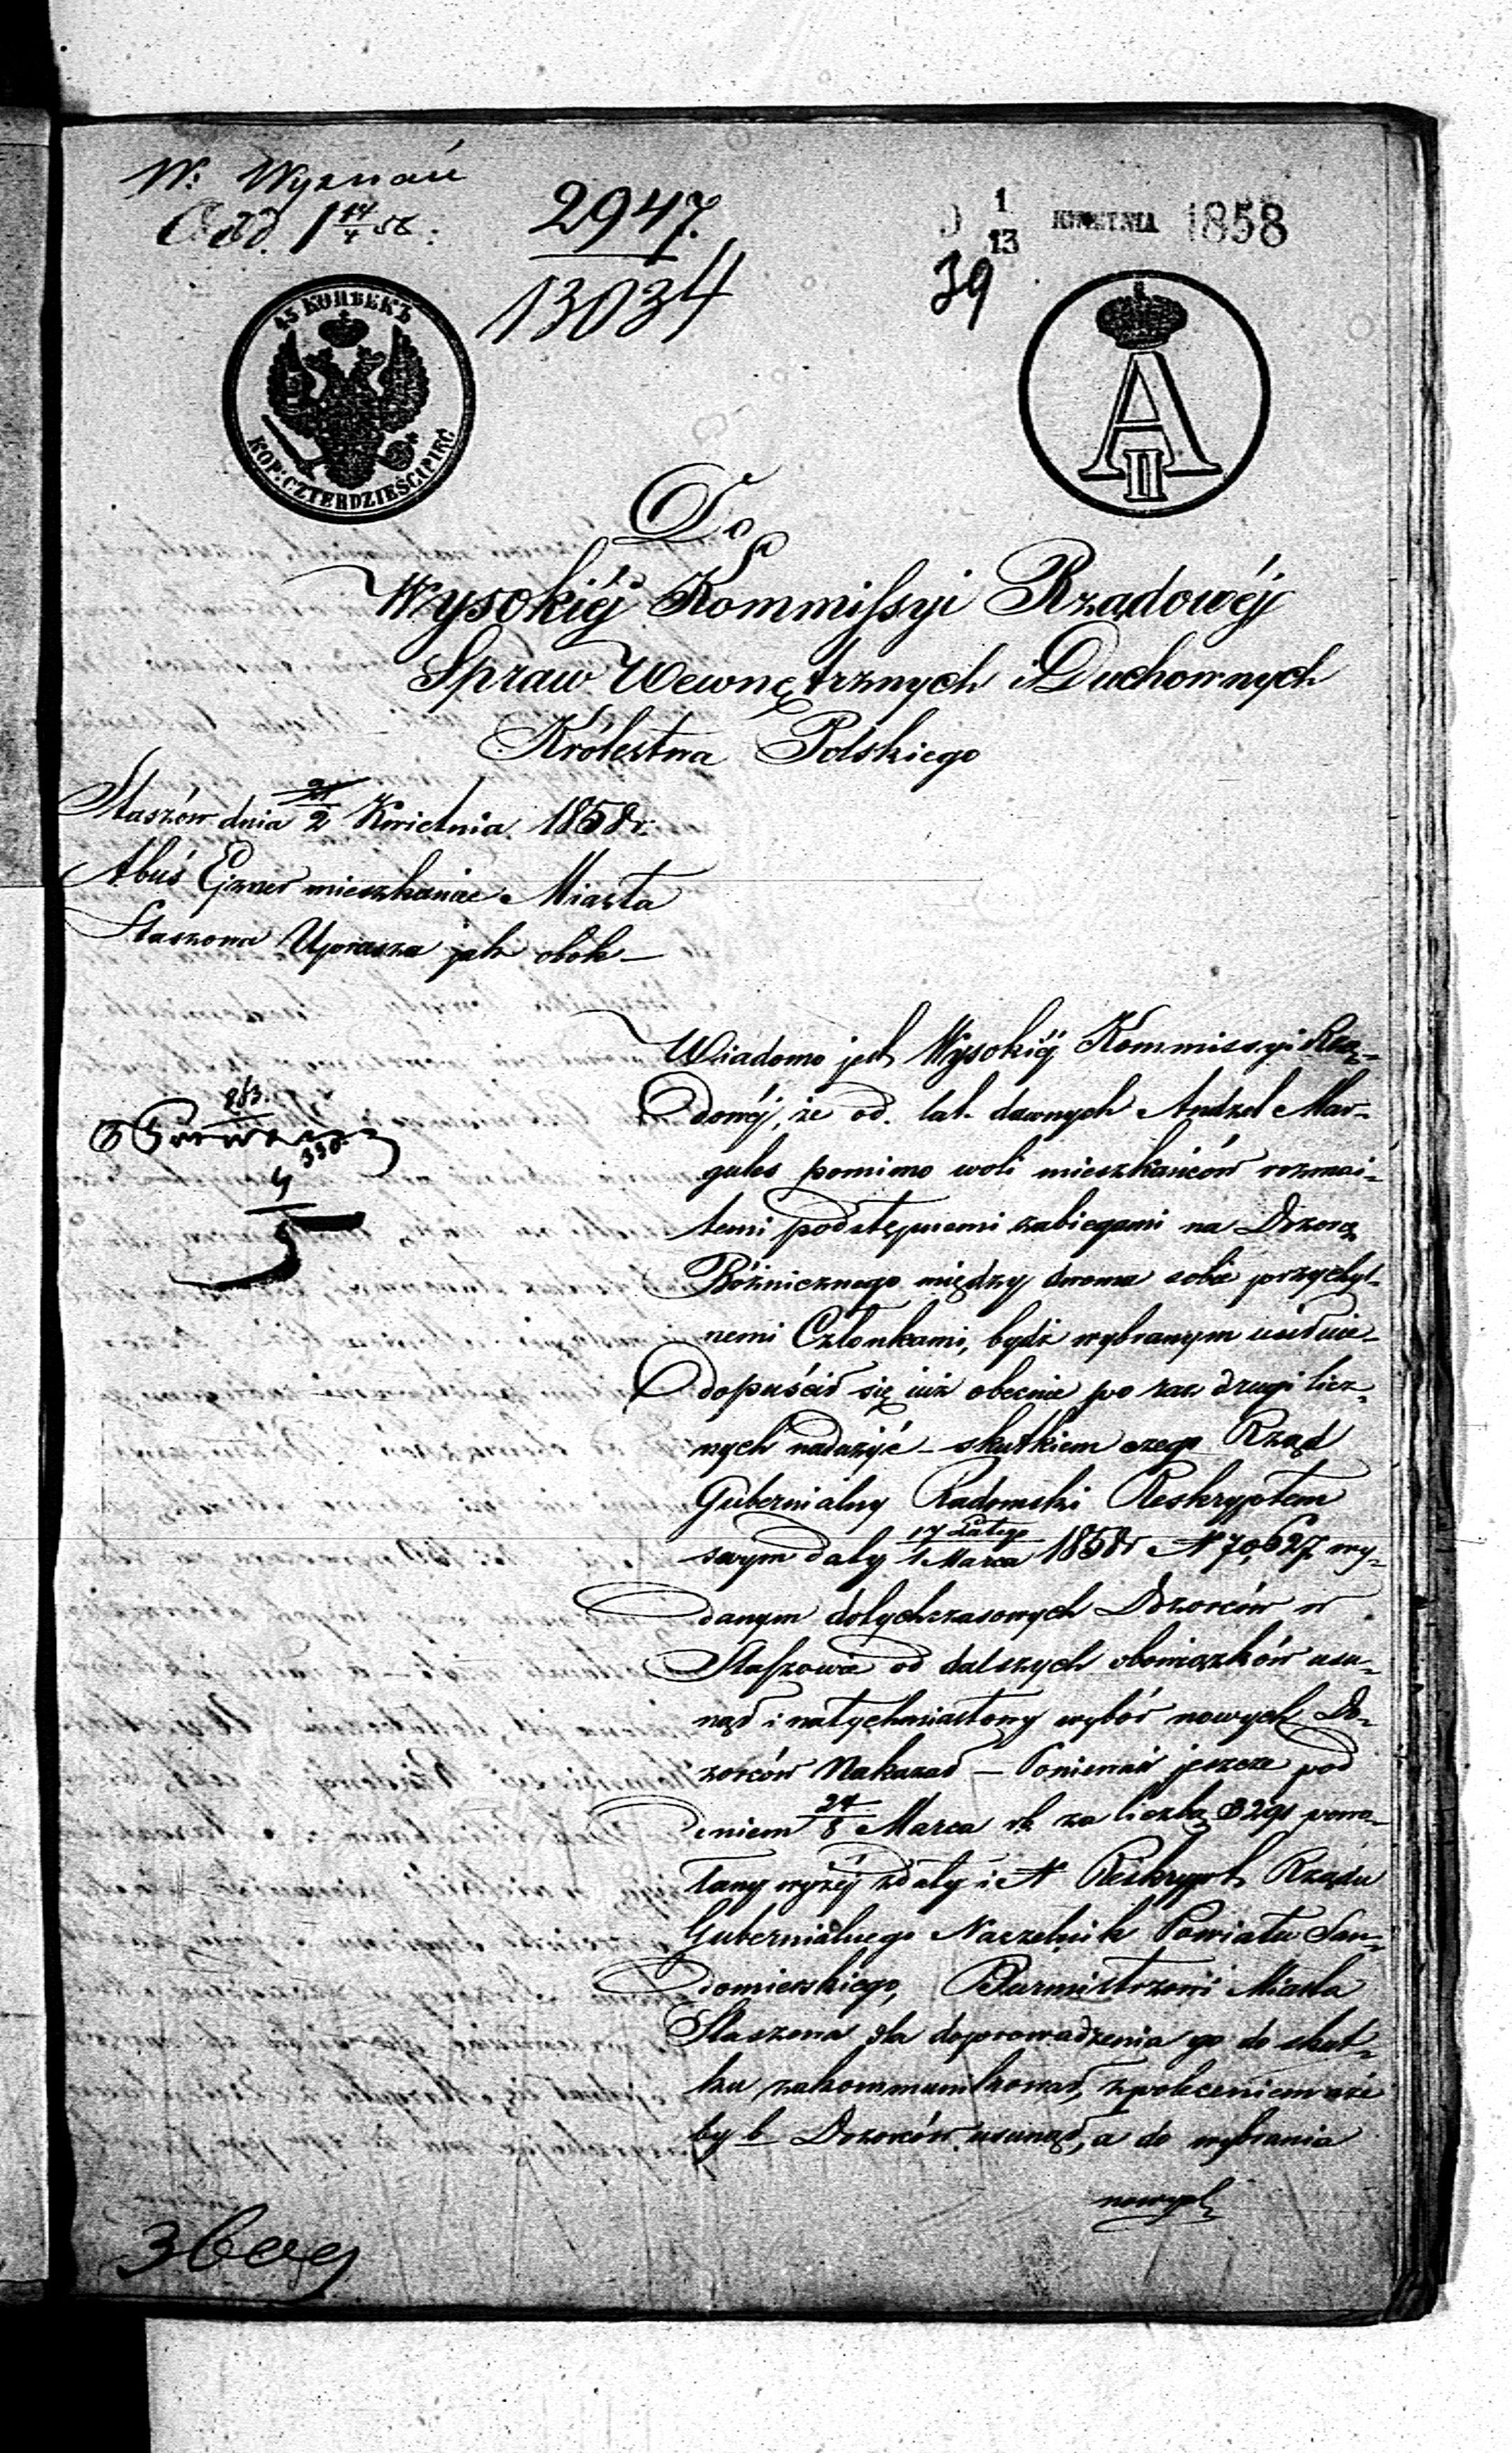 W: Wyznań
Odd. 1 14/4 58.
2947.
13034
D 1/13 KWIETNIA 1858
39
45 КОПѢЕКЪ
KOP: CZTERDZIEŚCI PIĘĆ
A II
Do
Wysokiéj Kommissyi Rządowéj
Spraw Wewnętrznych i Duchownych
Królestwa Polskiego
Staszów dnia 21/2 Kwietnia 1858 r.
Abuś Ejzner mieszkaniec Miasta
Staszowa Uprasza jak obok –
Wiadomo jest Wysokiéj Kommissyi Rzą-
dowéj, że od lat dawnych Andzel Mar-
gules pomimo woli mieszkańców rozmai-
temi podstępnemi zabiegami na Dozorcę
Bóżnicznego między dwoma sobie przychyl-
nemi Członkami, bądź wybranym
dopuścił się już obecnie po raz drugi licz-
nych nadużyć – skutkiem czego Rząd
Gubernialny Radomski Reskryptem
swym daty 17 Lutego/1 Marca 1858 r N 70,627 wy-
danym dotychczasowych Dozorców w
Staszowie od dalszych obowiązków usu-
nął i natychmiastowy wybór nowych Do-
zorców Nakazał – Ponieważ jeszcze pod
dniem 24/8 Marca rb za liczbą 3291 powo-
łany wyżéj z daty i N Reskrypt Rządu
Gubernialnego Naczelnik Powiatu San-
domierskiego, Burmistrzowi Miasta
Staszowa dla doprowadzenia go do skut-
ku zakommunikował, z poleceniem aże
by b Dozorców usunął, a do wybrania
nowych
283.
330
4
5